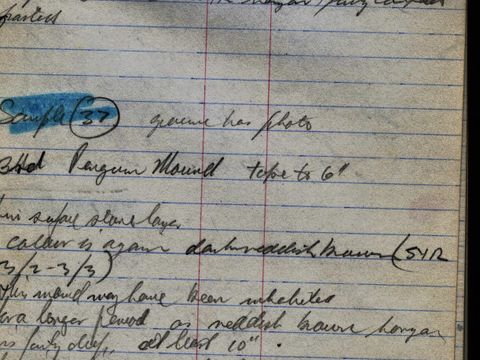 parties
Sample (37) Graeme has photo
3rd Penguin Mound tape to 6"
thin surface stone layer
colour is again dark reddish brown (5YR
3/2-3/3)
This mound may have been inhabited
for a longer period as reddish brown horizon
is fairly deep, at least 10".